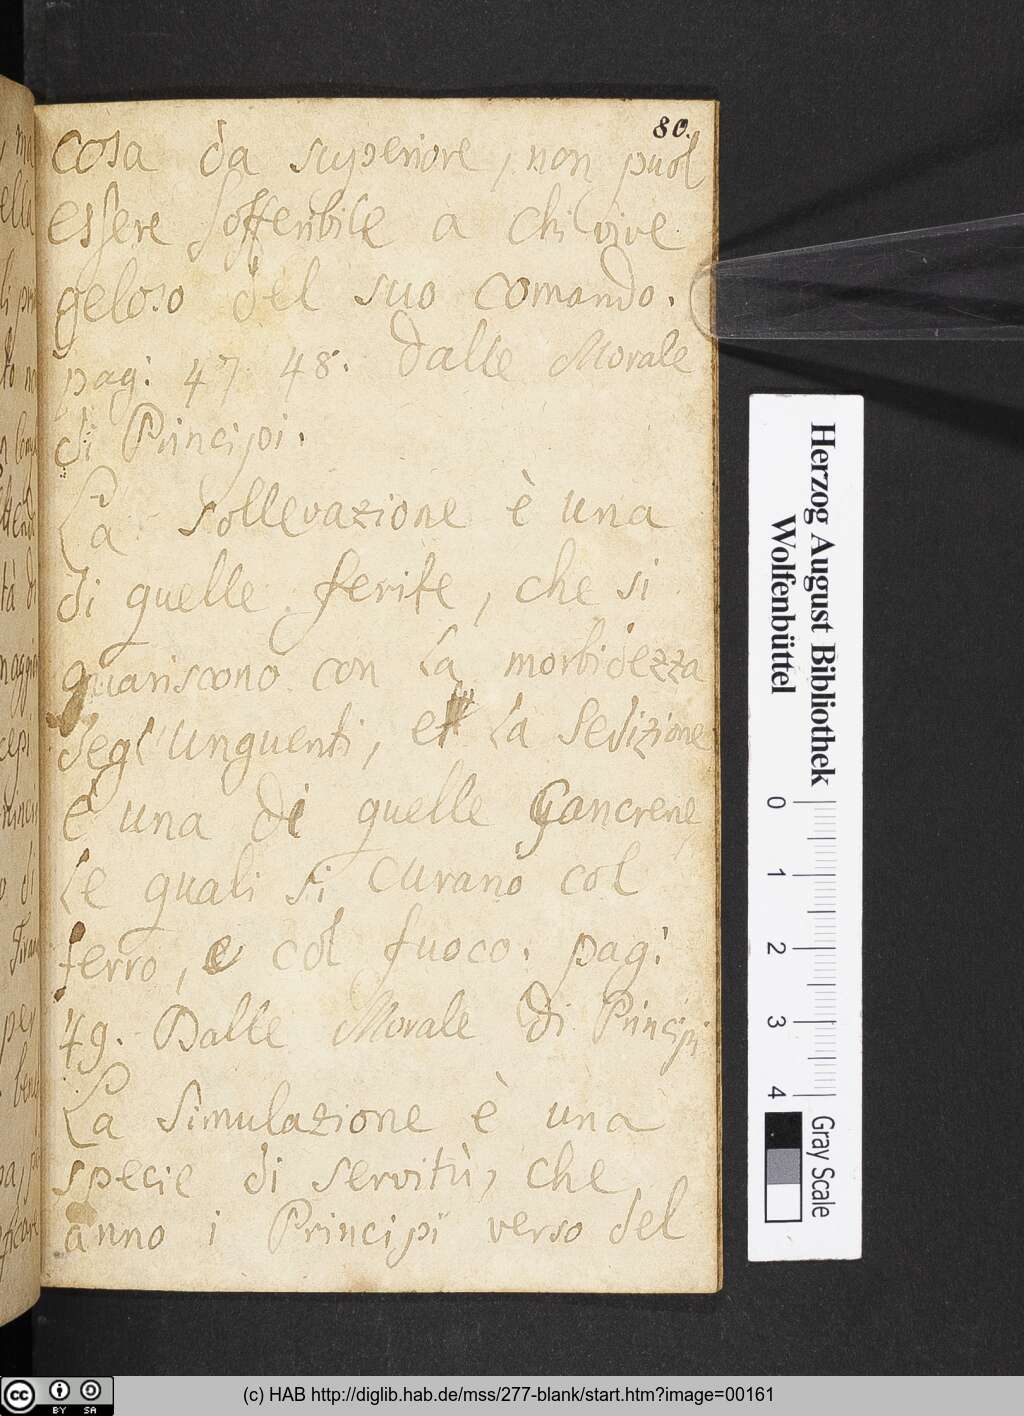 80.
cosa da superiore, non puol
essere sofferibile a chi vive
geloso del suo comando.
pag: 47. 48. dalle Morale
di Principi.
La sollevazione è una
di quelle ferite, che si
guariscono con la morbidezza
degl'unguenti, et la sedizione
è una di quelle Gancrene
le quali si curano col
ferro, e col fuoco. pag:
49. Dalle Morale di Principi
La simulazione è una
specie di servitù, che
anno i Principi verso del
Herzog August Bibliothek
Wolfenbüttel
0 1 2 3 4
Gray Scale
cc BY SA
(c) HAB http://diglib.hab.de/mss/277-blank/start.htm?image=00161